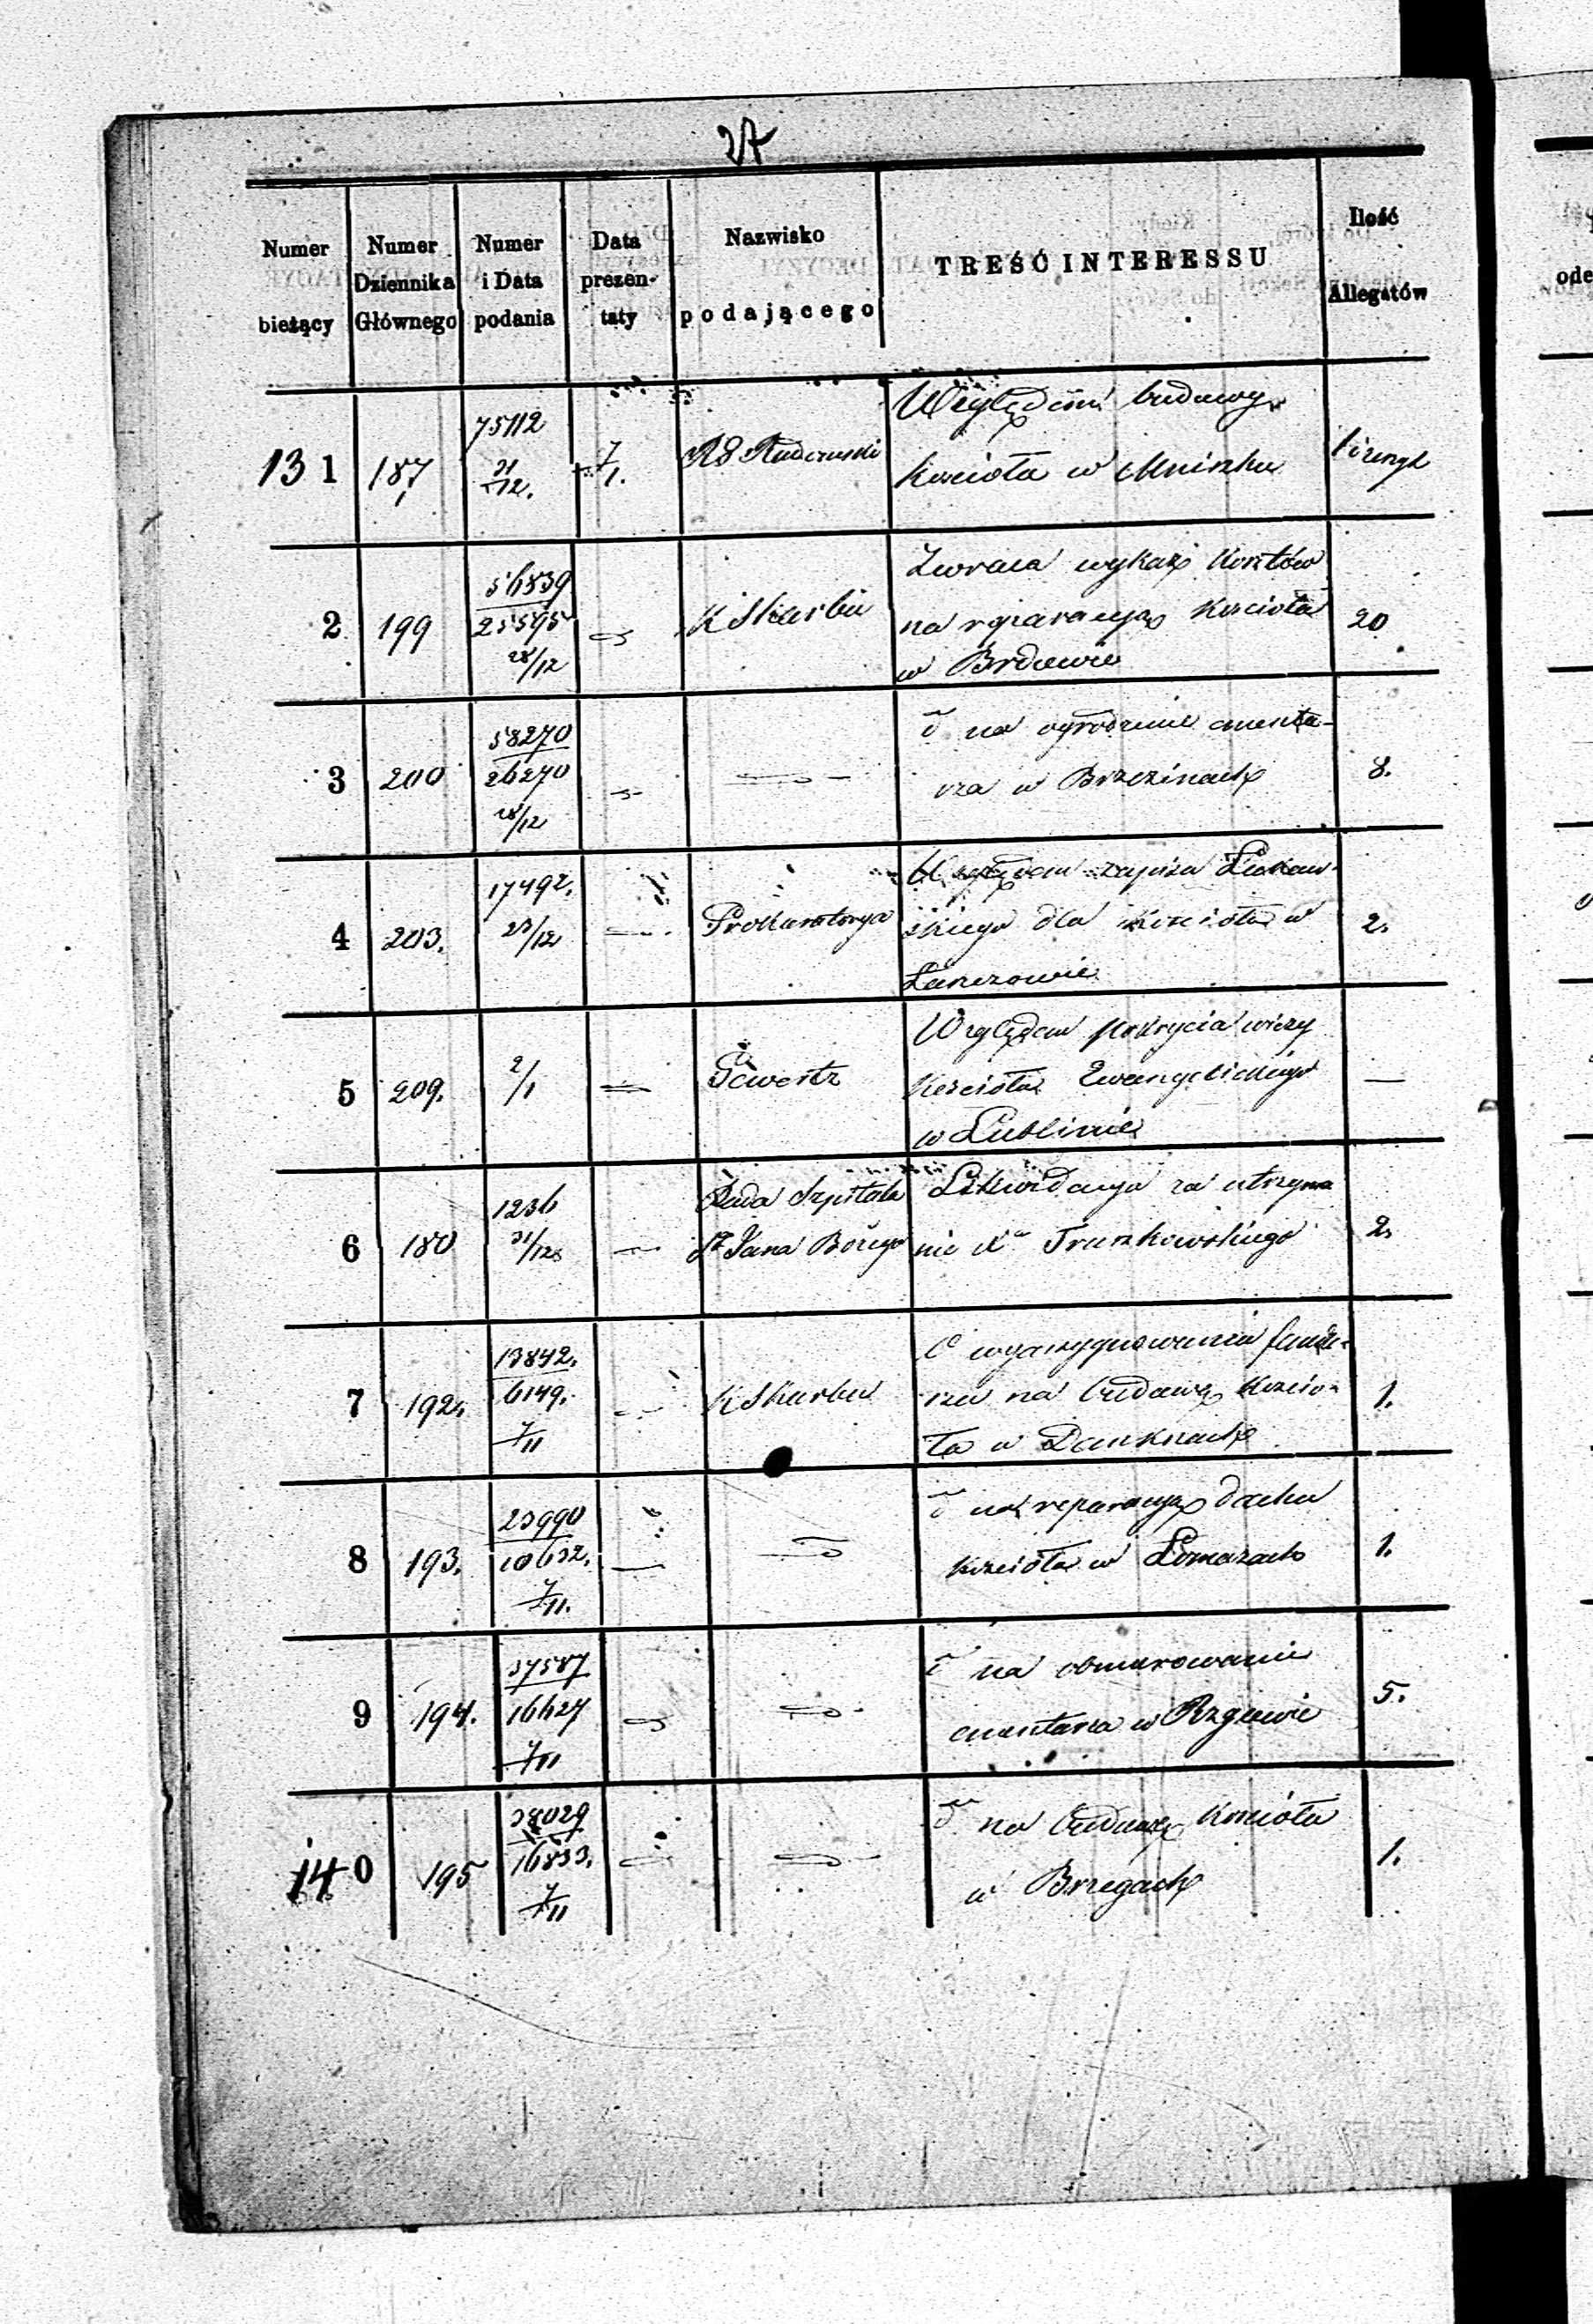 27
Numer bieżący
Numer Dziennika Głównego
Numer i Data podania
Data prezen- taty
Nazwisko podającego
TREŚĆ INTERESSU
Ilość Allegatów
131 187 75112 31/12. 7/1. RG Radomski
Względem budowy
kościoła w Mniszku
2 199 56839 25595 28/12 K Skarbu 20
Zwraca wykaz kosztów
na reparacyą kościoła
w Brdowie
3 200 58270 26270 28/12 8.
na ogrodzenie cmenta-
rza w Brzezinach
4 203. 17492. 23/12 Prokuratorya 2.
Względem zapisu
skiego dla kościoła w
5 209. 2/1 —
Względem pokrycia wieży
kościoła Ewangelickiego
w Lublinie
6 180 1236 31/12 Rada Szpitala
Sgo Jana Bożego 2.
Likwidacya za utrzyma
nie Xa Truszkowskiego
7 192. 13842. 6149. 7/11 K Skarbu 1.
O wyasygnowanie fundu-
szu na budowę kościo-
ła w
8 193. 23990 10632. 7/11. 1.
na reparacyą dachu
kościoła w Łomazach
9 194. 37587 16627 7/11 5.
na obmurowanie
cmentarza w Rzgowie
140 195 38029 16833. 7/11 1.
na budowę kościoła
w Brzegach
ode